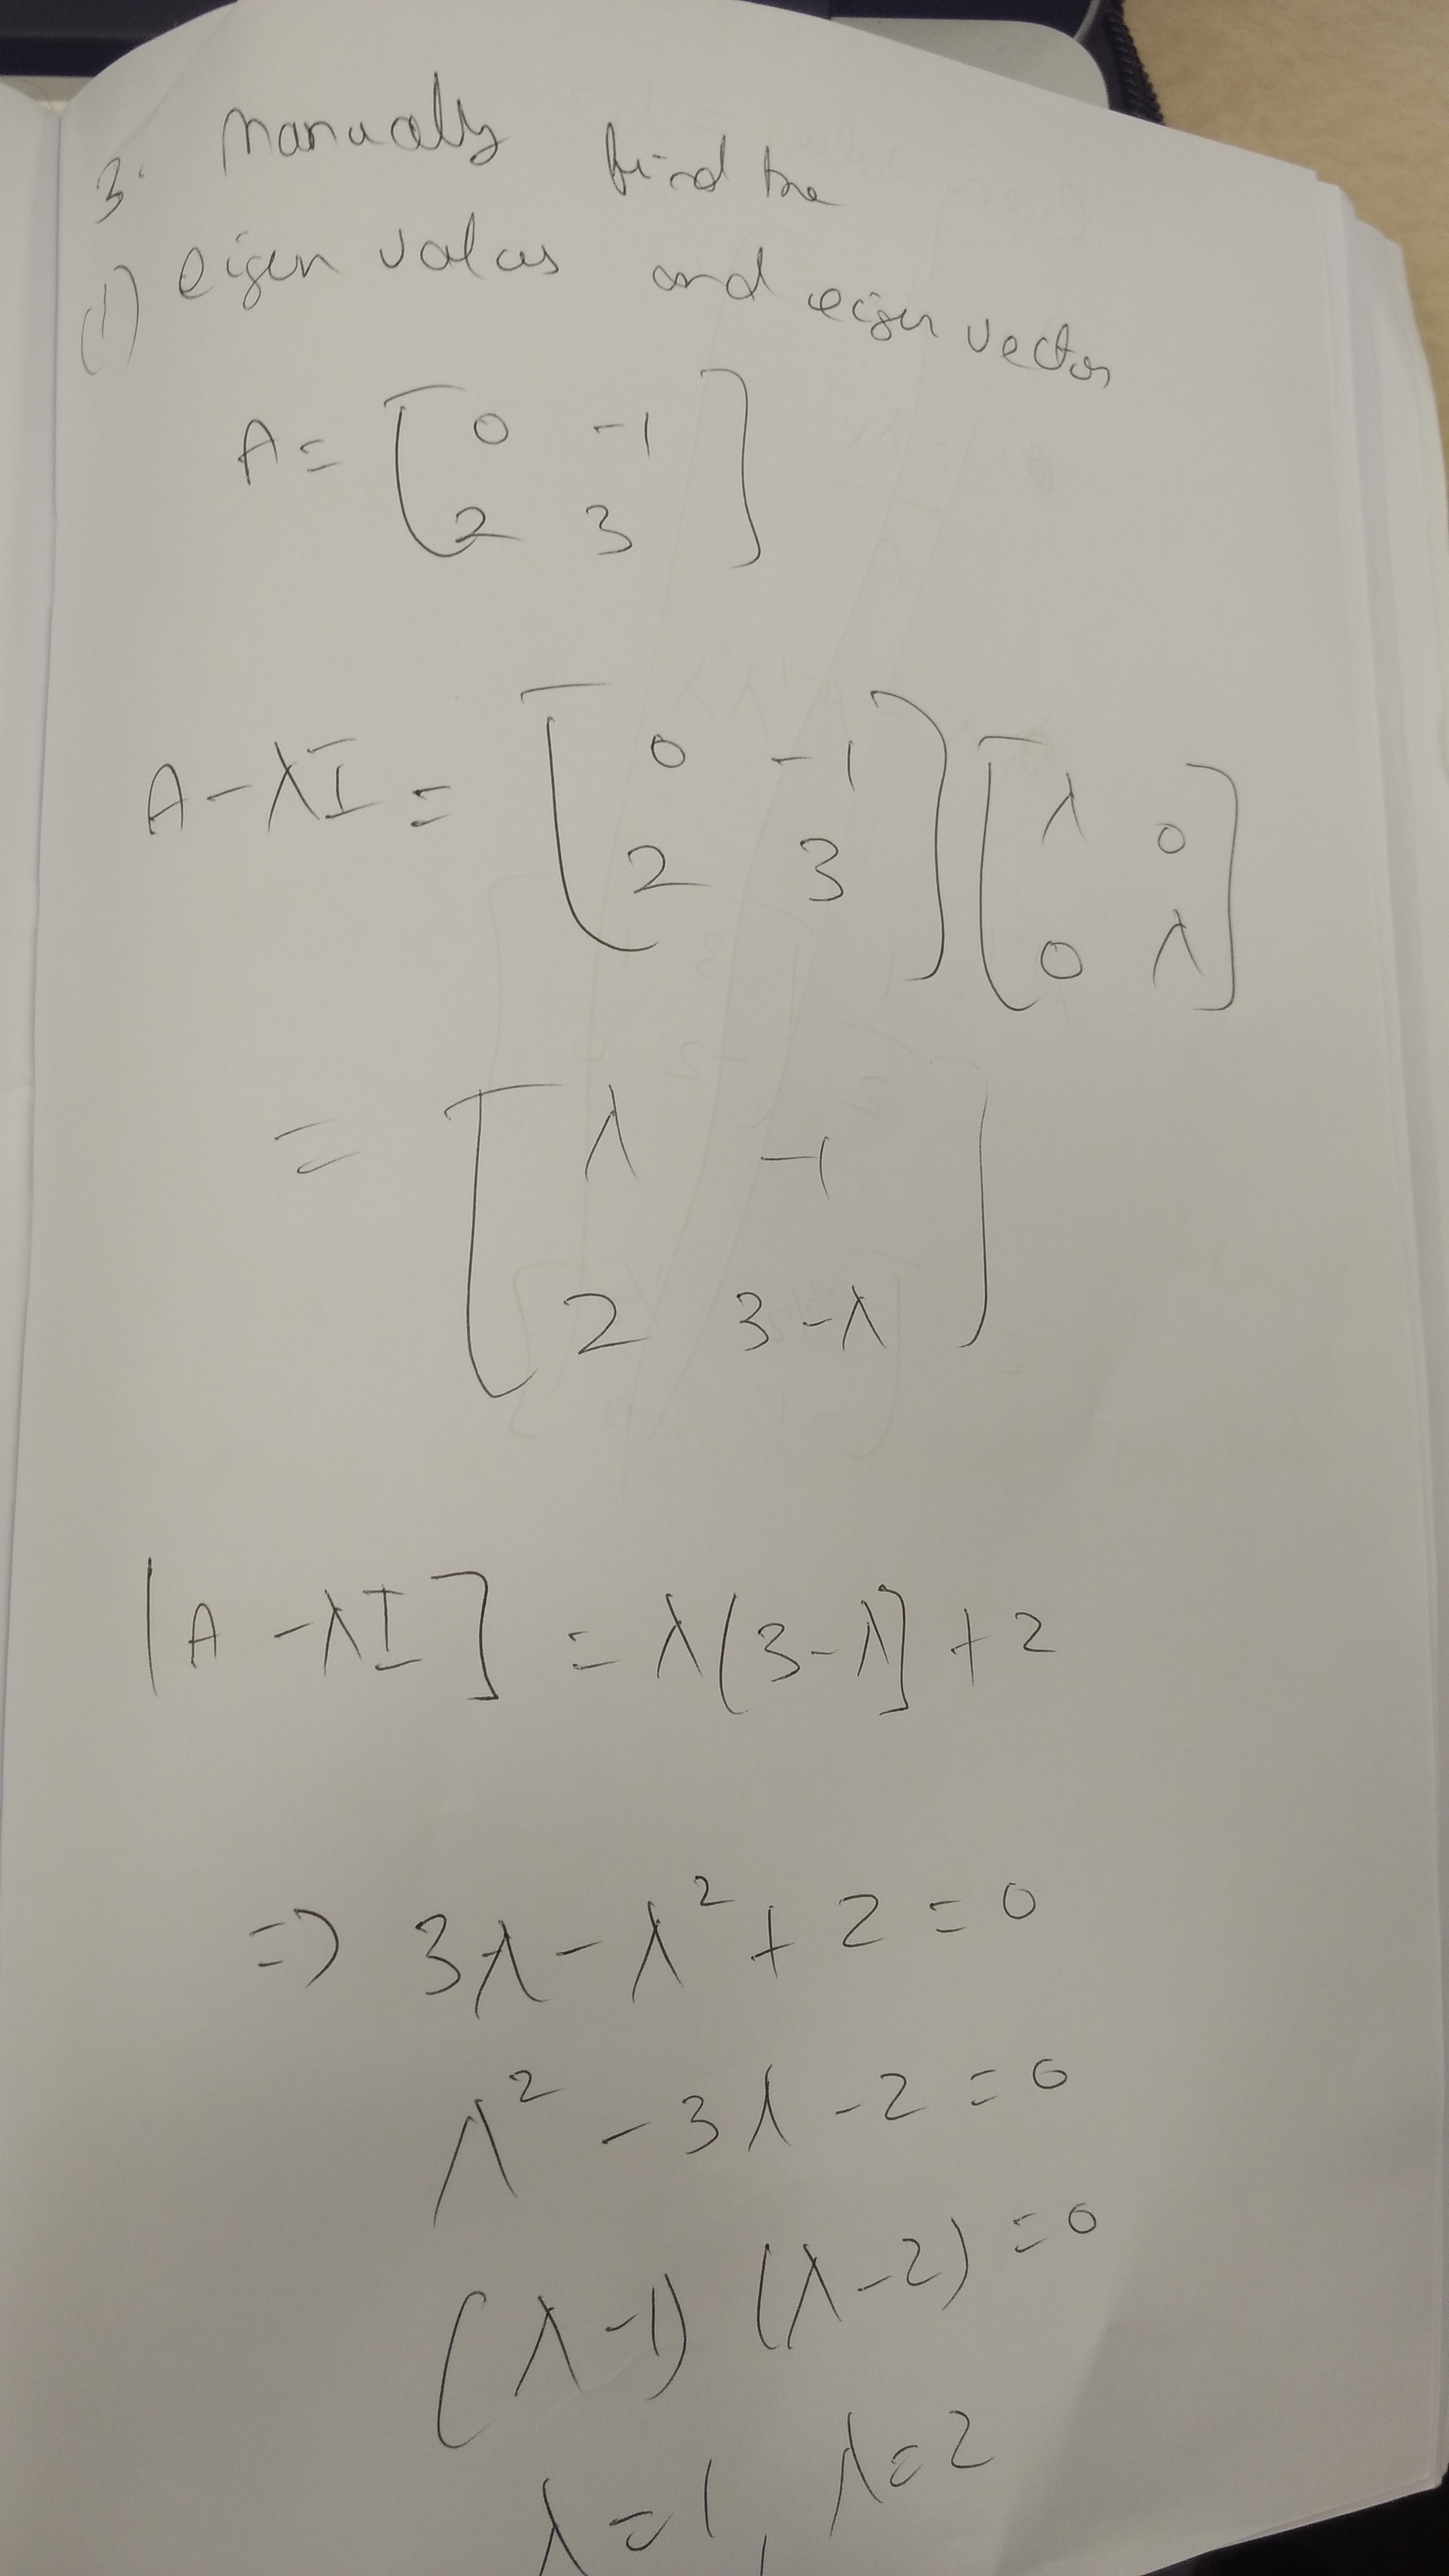 3. Manually find the
(1) eigen values and eigen vector
A = [ 0 -1
2 3 ]
A - λI = [ 0 -1
2 3 ] [ λ 0
0 λ ]
= [ λ -1
2 3-λ ]
|A - λI] = λ(3-λ] + 2
=> 3λ - λ² + 2 = 0
λ² - 3λ - 2 = 0
(λ-1) (λ-2) = 0
λ = 1, λ = 2